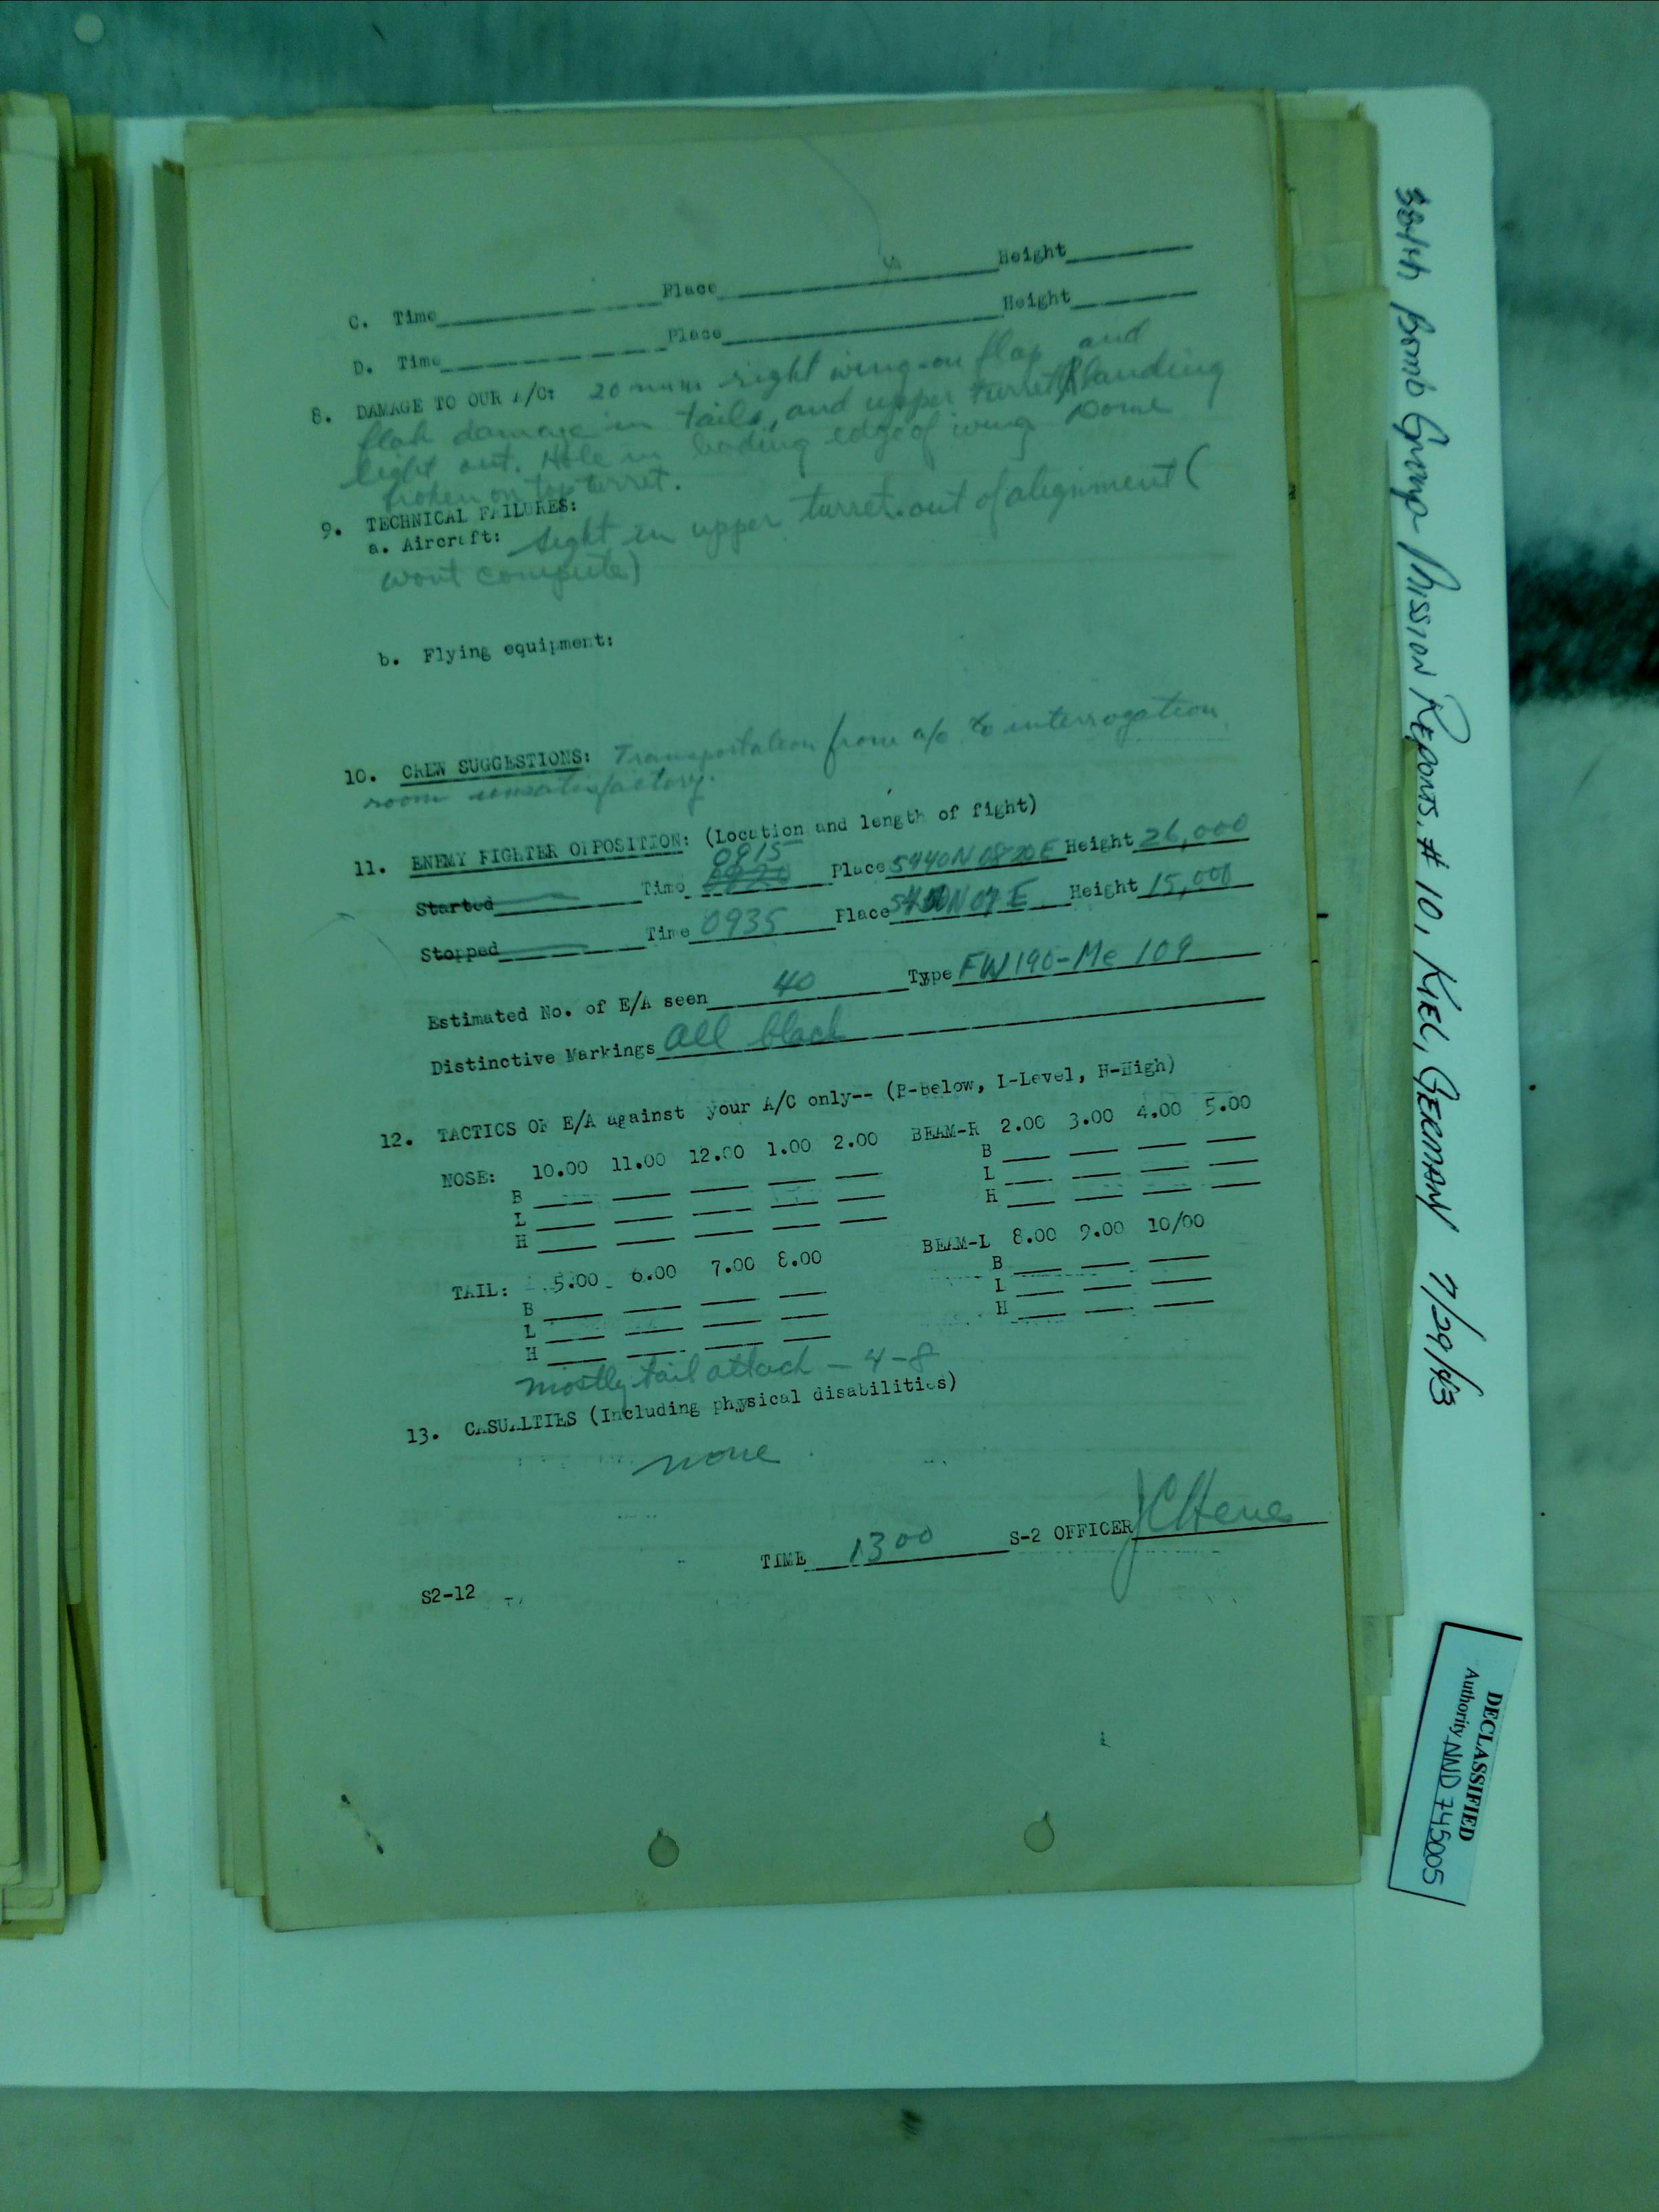 C. Time Place Height
D. Time Place Height
8. DAMAGE TO OUR A/C: 20 mm right wing-on flap and
flak damage in tail, and upper turret, R landing
light out. Hole in leading edge of wing Dome
broken on top turret.
9. TECHNICAL FAILURES:
a. Aircraft: Sight in upper turret out of alignment (
wont compute)
b. Flying equipment:
10. CREW SUGGESTIONS: Transportation from a/c to interrogation
room unsatisfactory.
11. ENEMY FIGHTER OPPOSITION: (Location and length of fight)
Started Time 0915 Place 5440N 0820E Height 26,000
Stopped Time 0935 Place N 07 E Height 15,000
Estimated No. of E/A seen 40 Type FW190-Me 109
Distinctive Markings all black
12. TACTICS OF E/A against your A/C only-- (B-Below, L-Level, H-High)
NOSE: 10.00 11.00 12.00 1.00 2.00 BEAM-R 2.00 3.00 4.00 5.00
B B
L L
H H
TAIL: 5.00 6.00 7.00 8.00 BEAM-L 8.00 9.00 10/00
B B
L L
H H
mostly tail attack - 4-8
13. CASUALTIES (Including physical disabilities)
none
TIME 1300 S-2 OFFICER
S2-12
384th Bomb Group Mission Reports, # 10, KIEL, GERMANY 7/29/43
DECLASSIFIED
Authority NND 745005